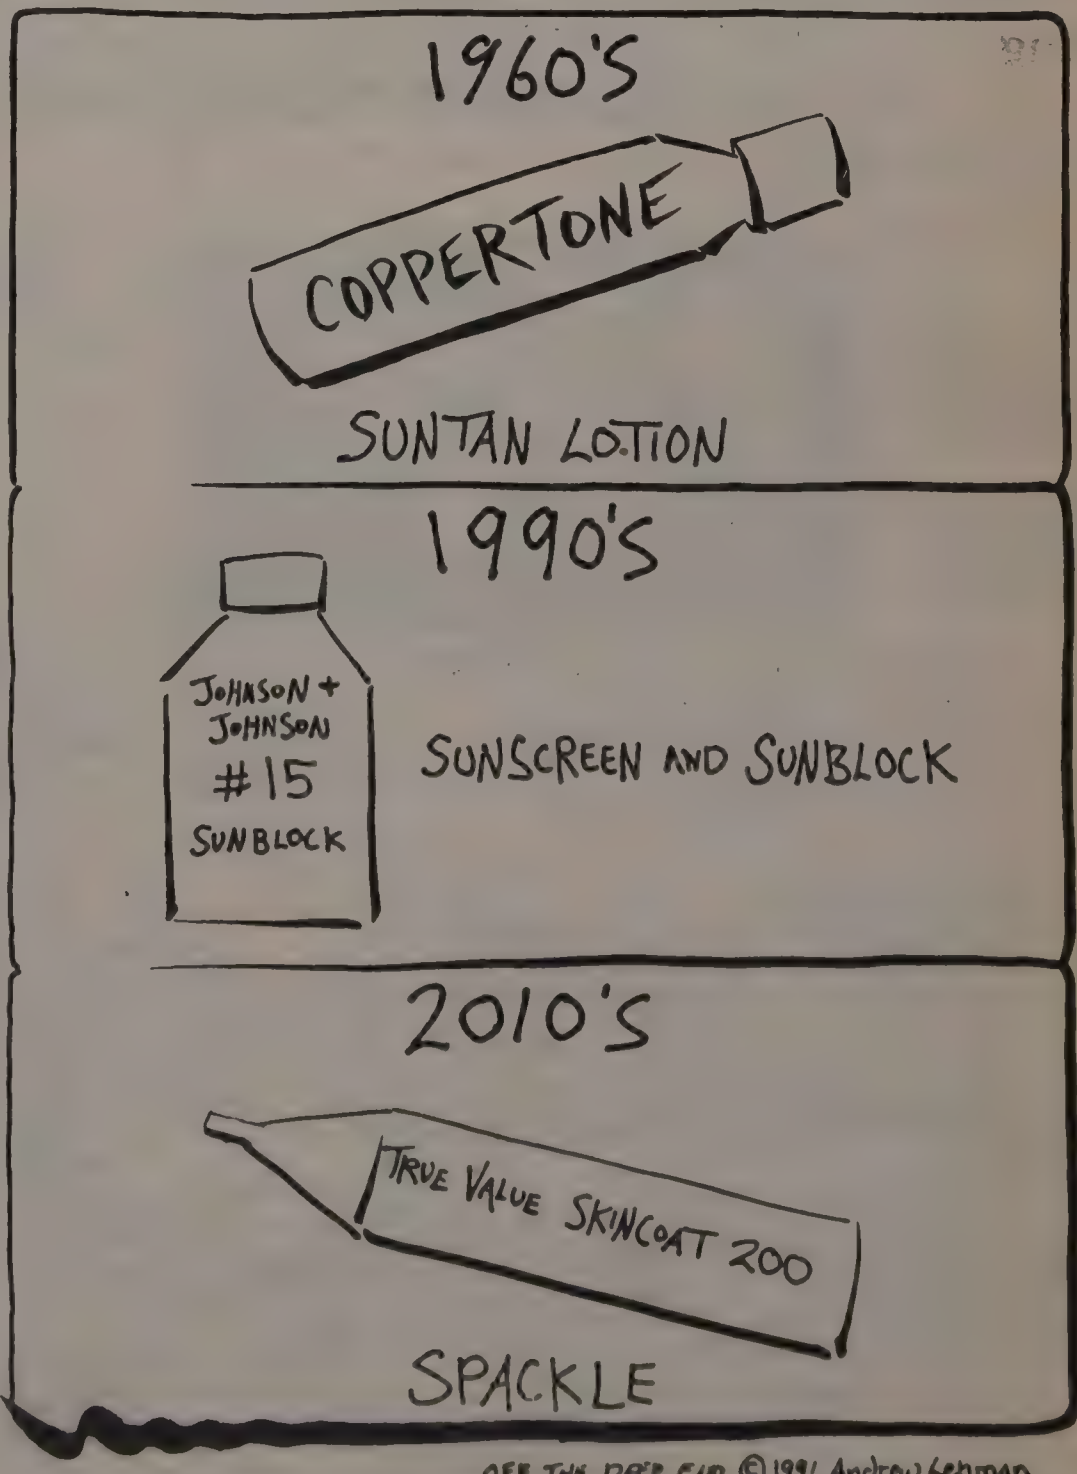 1960'S
COPPERTONE
SUNTAN LOTION
1990'S
JOHNSON +
JOHNSON
#15
SUNBLOCK
SUNSCREEN AND SUNBLOCK
2010'S
TRUE VALUE SKINCOAT 200
SPACKLE
OFF THE DEEP END © 1991 Andrew Lehman